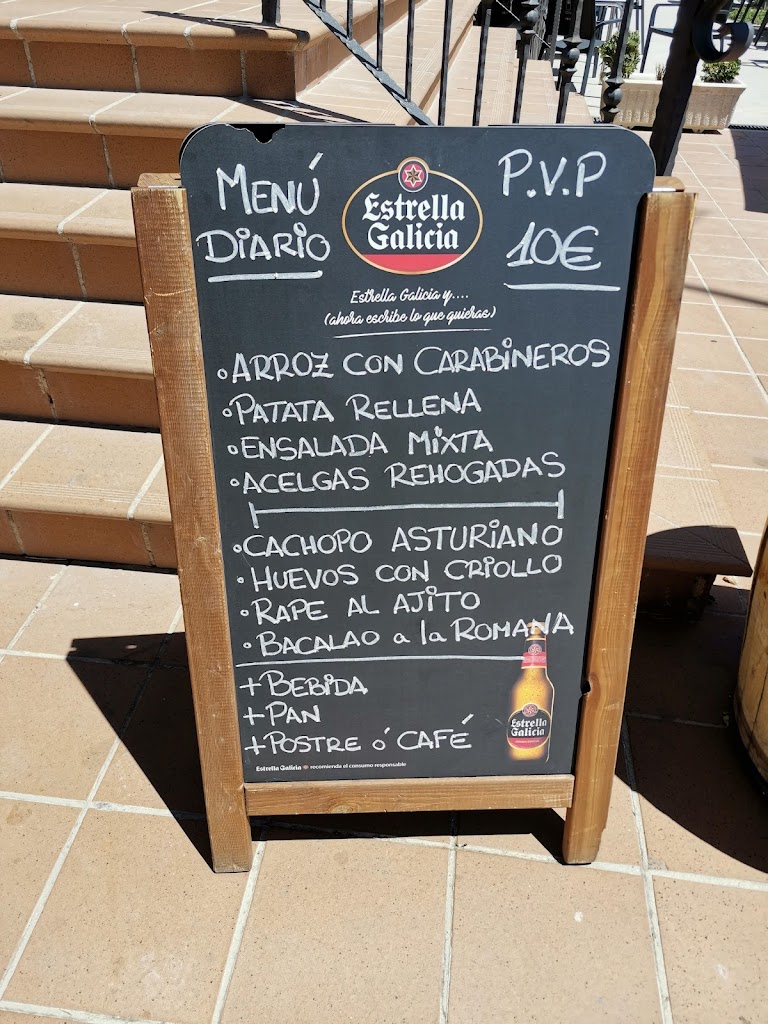 MENÚ
DIARIO
Estrella
Galicia
P.V.P
10€
Estrella Galicia y....
(ahora escribe lo que quieras)
ARROZ CON CARABINEROS
PATATA RELLENA
ENSALADA MIXTA
ACELGAS REHOGADAS
CACHOPO ASTURIANO
HUEVOS CON CRIOLLO
RAPE AL AJITO
BACALAO a la ROMANA
+BEBIDA
+PAN
+POSTRE ó CAFÉ
Estrella
Galicia
Estrella Galicia recomienda el consumo responsable